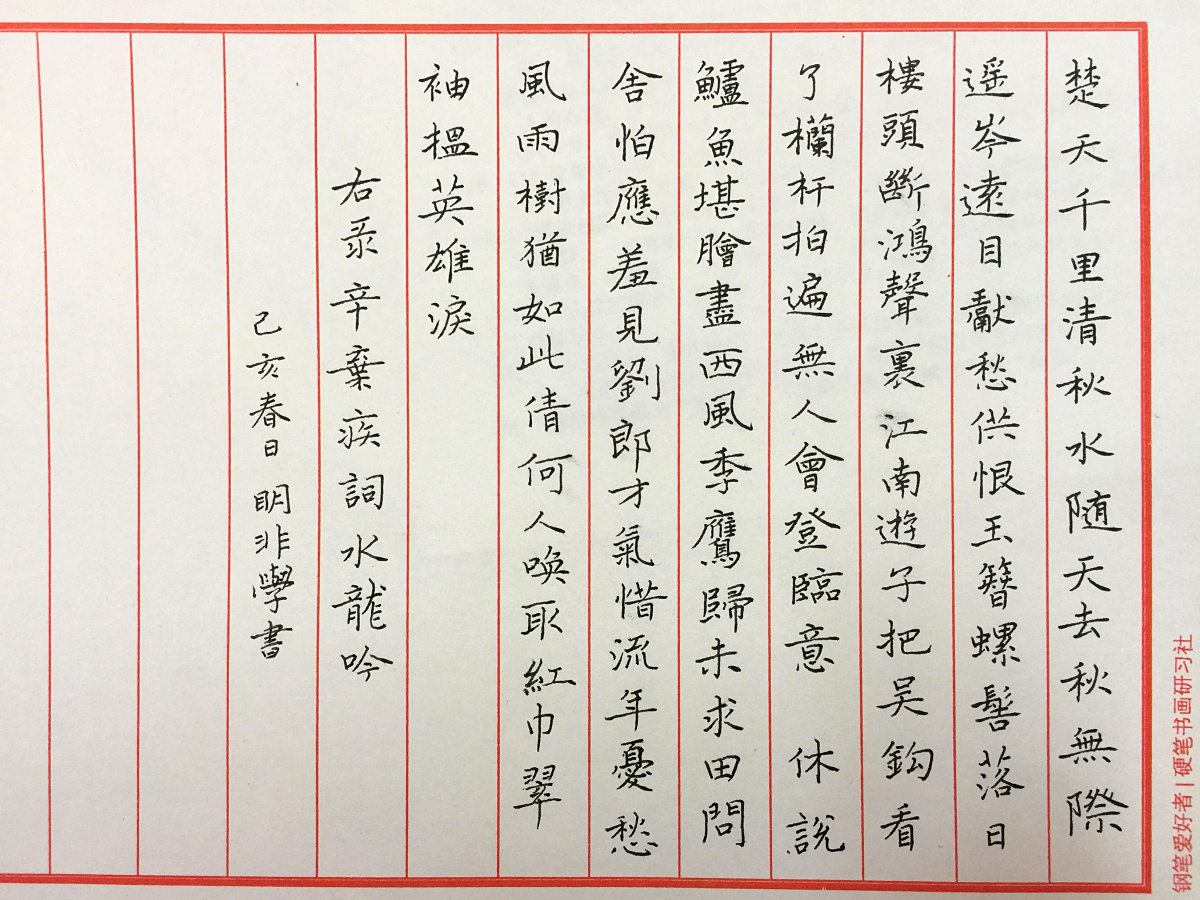 楚天千里清秋水随天去秋無際
遥岑遠目獻愁供恨玉簪螺髻落日
樓頭斷鴻聲裏江南遊子把吴鈎看
了欄杆拍遍無人會登臨意 休説
鱸魚堪膾盡西風季鷹歸未求田問
舍怕應羞見劉郎才氣惜流年憂愁
風雨樹猶如此倩何人唤取紅巾翠
袖揾英雄淚
右录辛棄疾詞水龍吟
己亥春日明非學書
钢笔爱好者|硬笔书画研习社